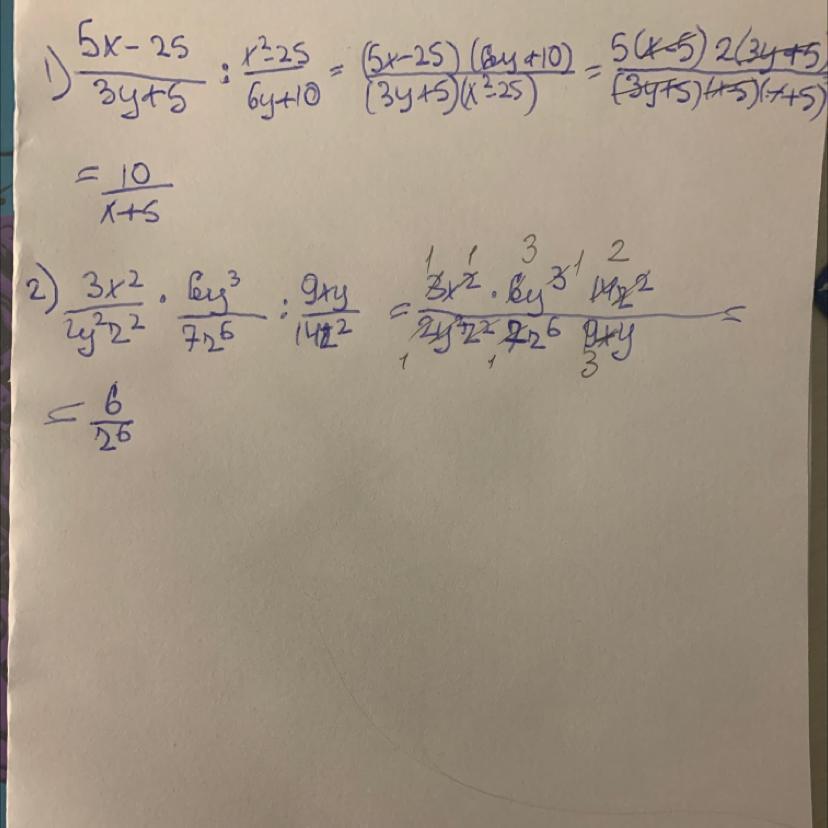 1) (5x-25)/(3y+5) : (x²-25)/(6y+10) = ((5x-25)(6y+10))/((3y+5)(x²-25)) = (5(x-5) 2(3y+5))/((3y+5)(x-5)(x+5))
= 10/(x+5)
2) 3x²/(2y²z²) · 6y³/(7z⁶) : 9xy/(14z²) = (3x² · 6y³ 14z²)/(2y²z² 7z⁶ 9xy) =
= 6/z⁶